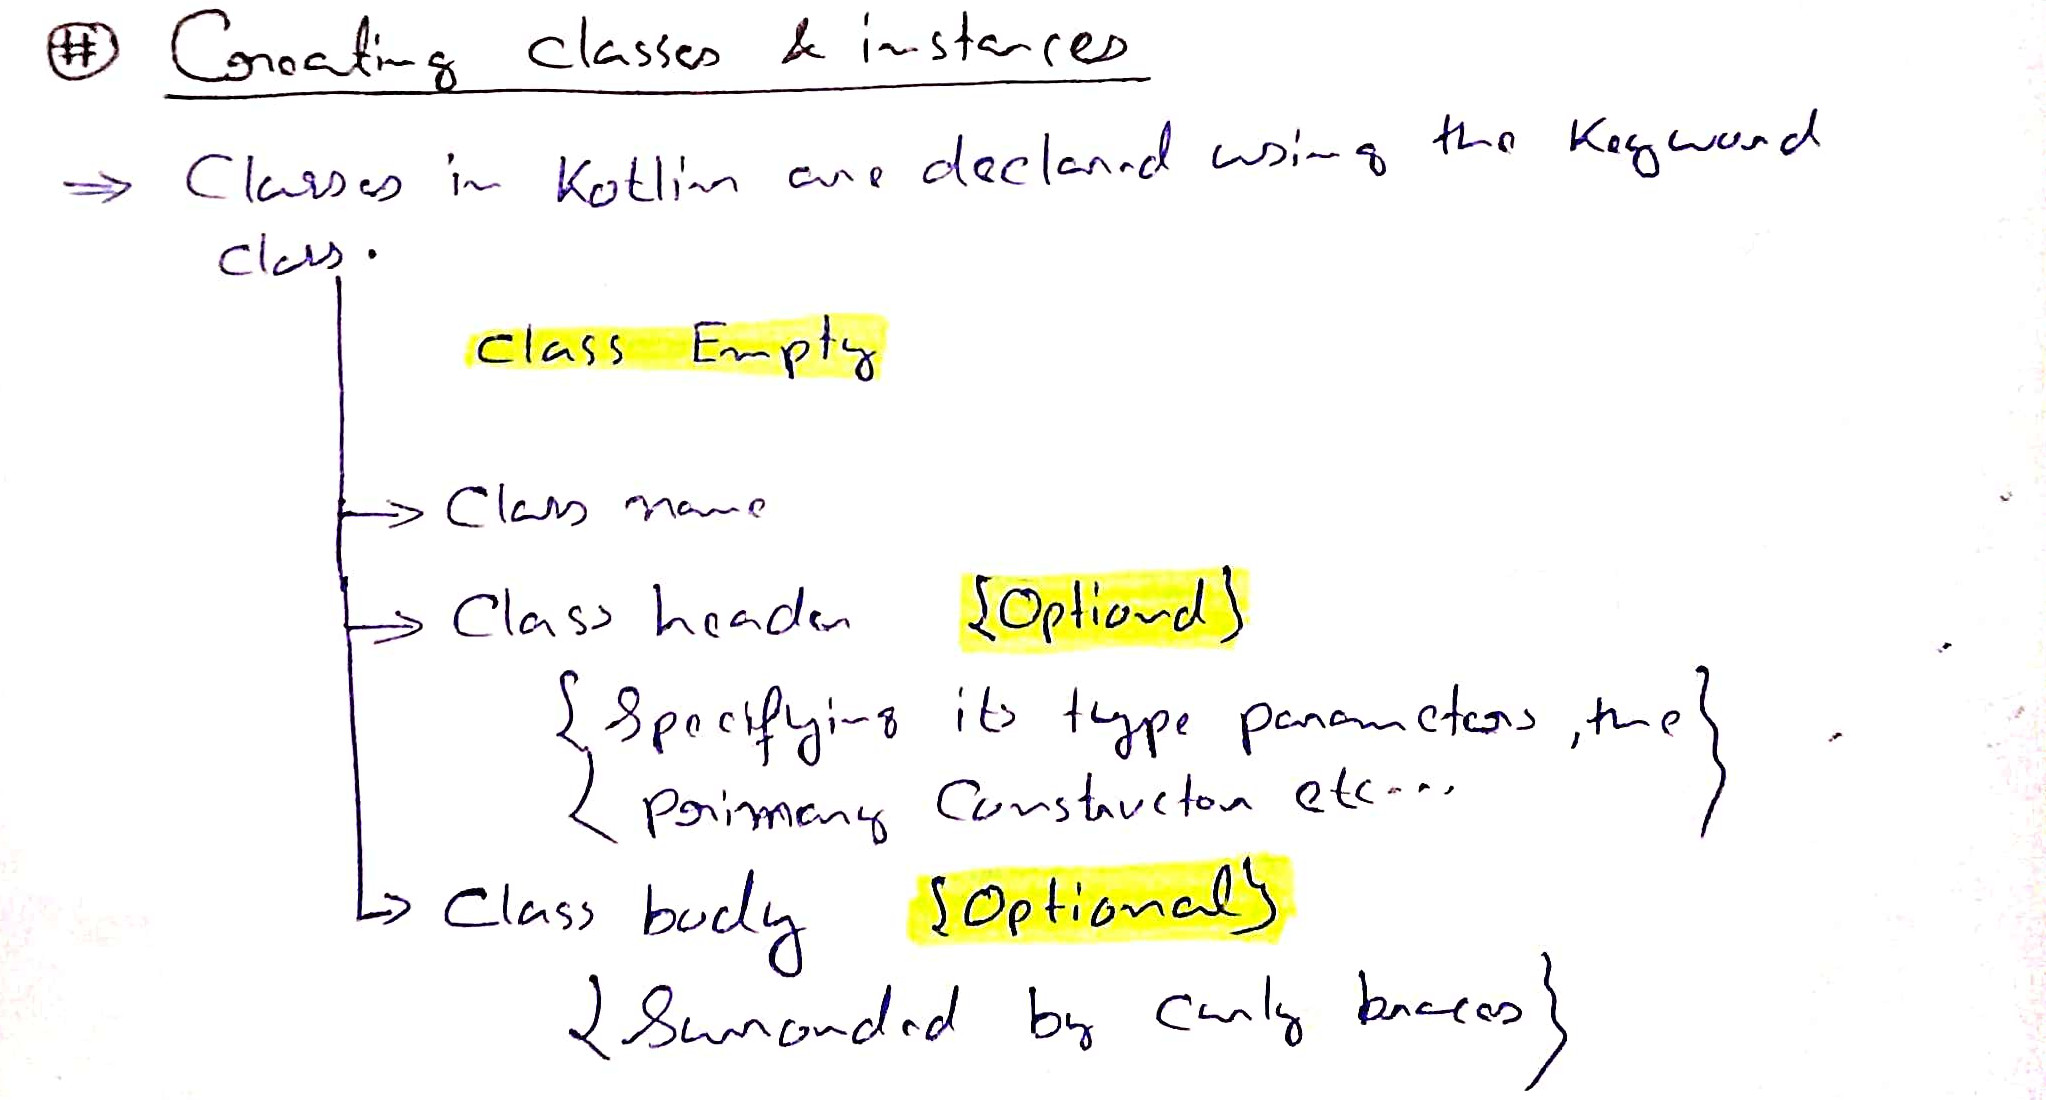 # Creating classes & instances
⇒ Classes in Kotlin are declared using the Keyword
class.
class Empty
→ Class name
→ Class header {Optional}
{Specifying its type parameters, the
primary Constructor etc...}
→ Class body {Optional}
{Surrounded by curly braces}